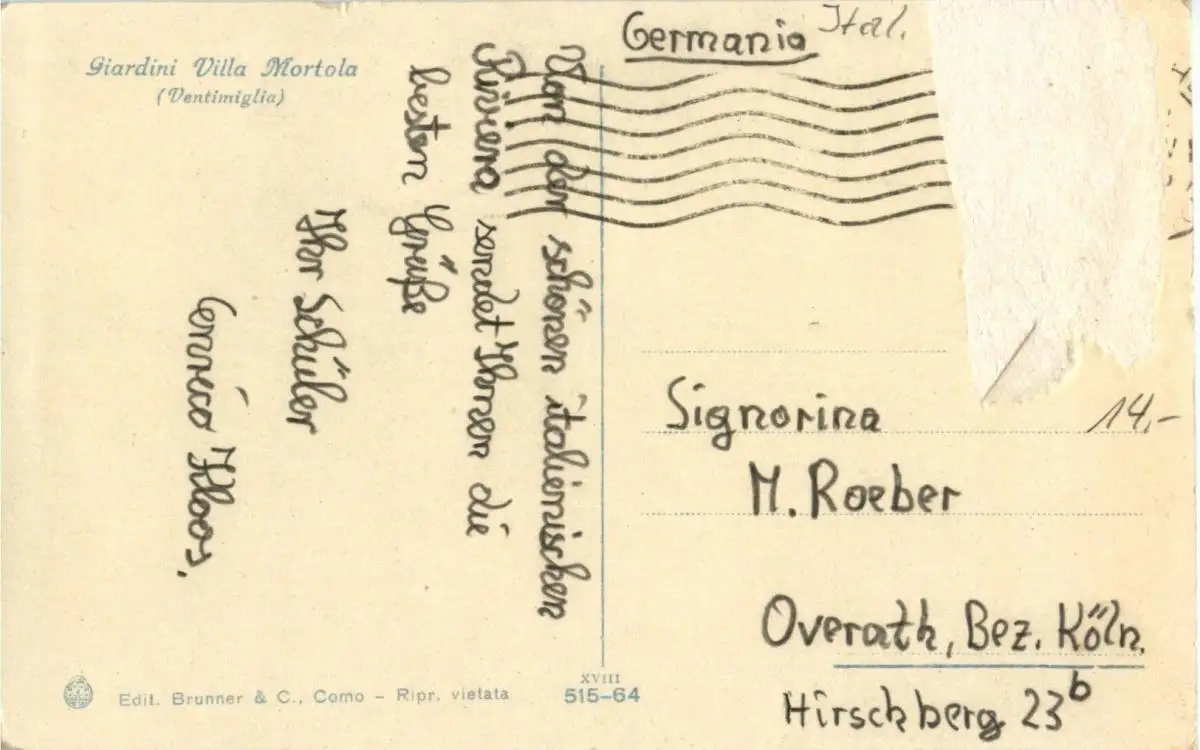 Giardini Villa Mortola
(Ventimiglia)
Von der schönen italienischen
Riviera sendet Ihnen die
besten Grüße
Ihr Schüler
Enrico Kloos.
Germania
Ital.
Signorina
14.-
M. Roeber
Overath, Bez. Köln.
Hirschberg 23b
Edit. Brunner & C., Como - Ripr. vietata
XVIII
515-64